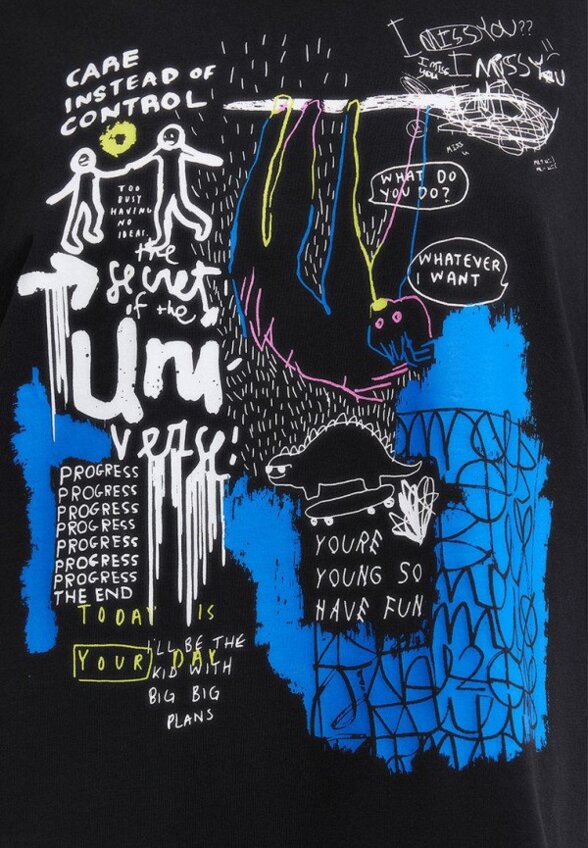 CARE
INSTEAD OF
CONTROL
TOO
BUSY
HAVING
NO
IDEAS.
the
secret
of the
Uni-
verse:
PROGRESS
PROGRESS
PROGRESS
PROGRESS
PROGRESS
PROGRESS
PROGRESS
THE END
TODAY IS
YOUR DAY
I'LL BE THE
KID WITH
BIG BIG
PLANS
I MISS YOU??
I MISS
YOU
I MISS YOU
MISS
U
WHAT DO
YOU DO?
WHATEVER
I WANT
YOURE
YOUNG SO
HAVE FUN